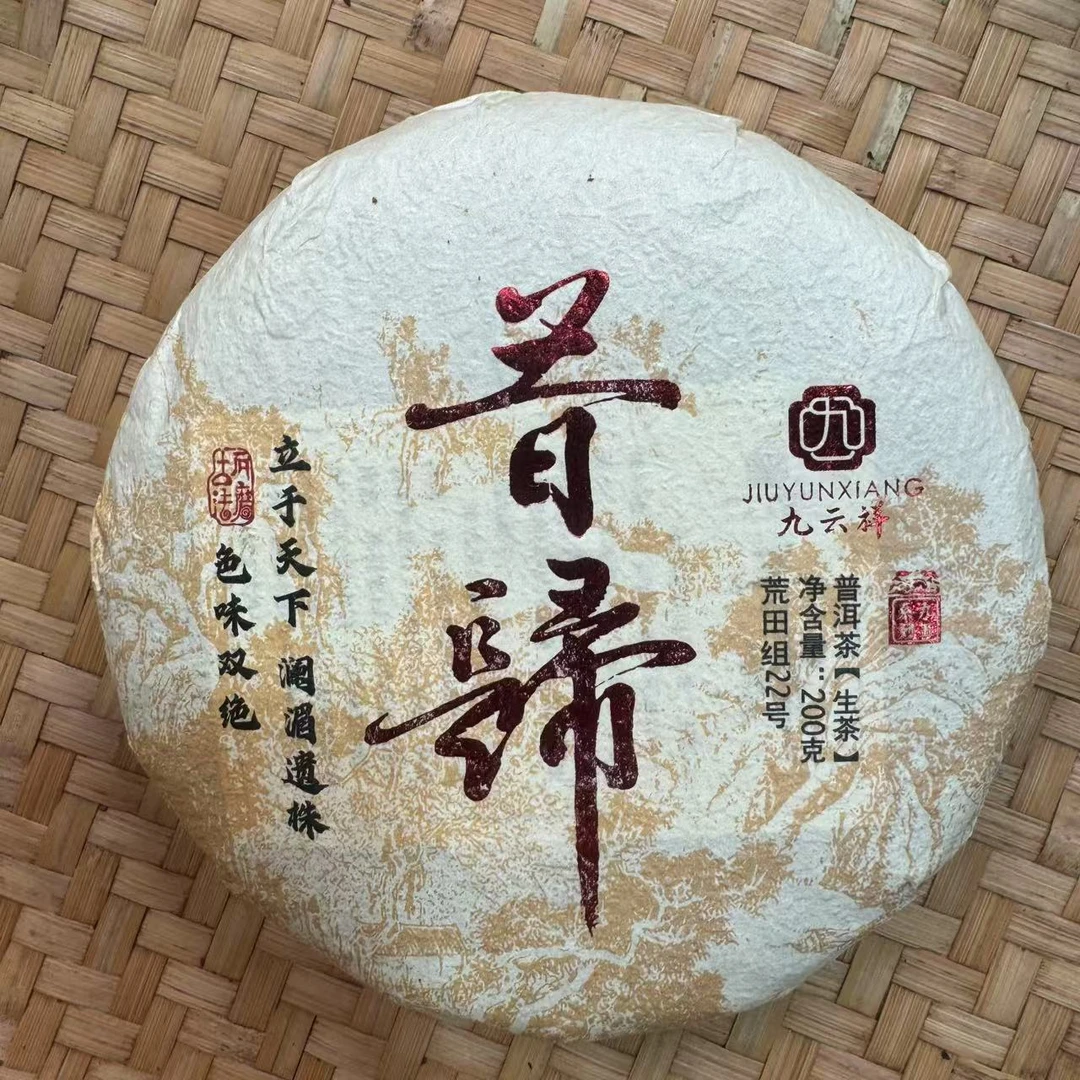 昔歸
JIUYUNXIANG
九云祥
普洱茶【生茶】
净含量：200克
荒田组22号
立于天下 澜湄遗株
色味双绝
石磨古法